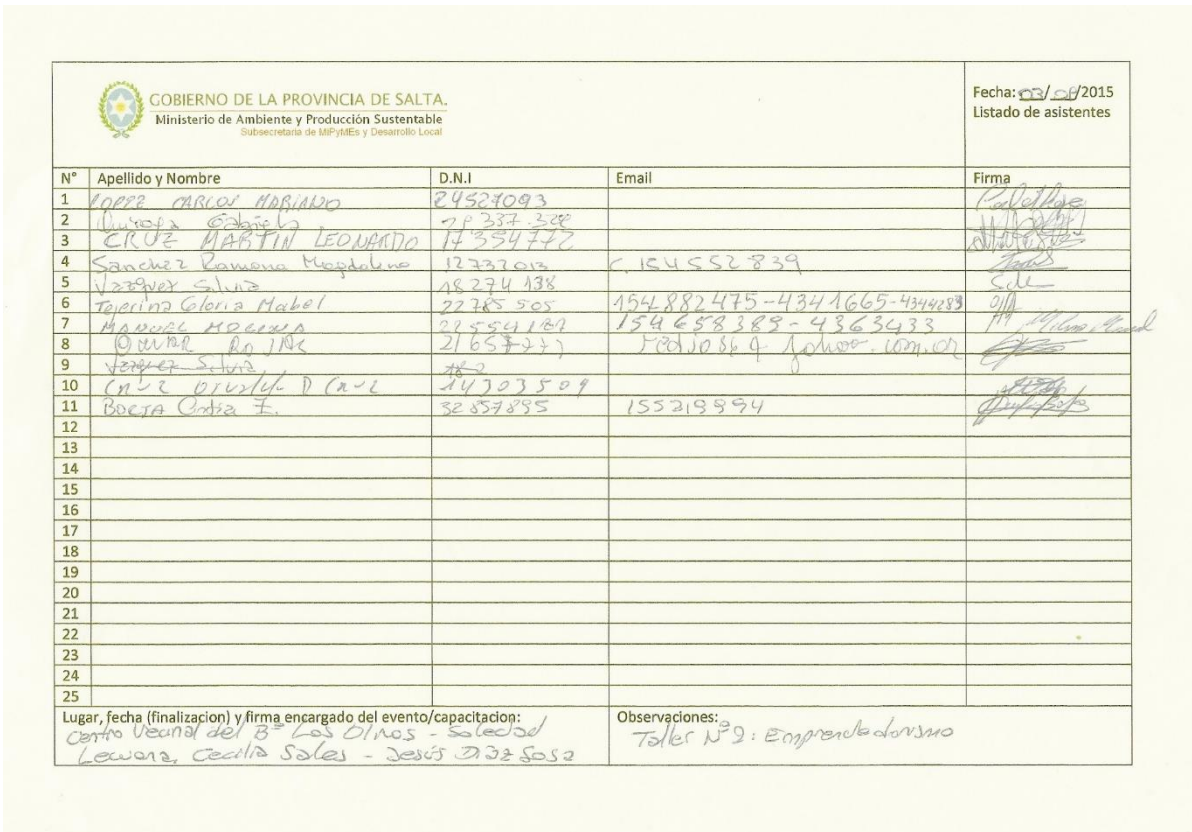 GOBIERNO DE LA PROVINCIA DE SALTA.
Ministerio de Ambiente y Producción Sustentable
Subsecretaria de MiPyMEs y Desarrollo Local
Fecha: 03/ /2015
Listado de asistentes
N° Apellido y Nombre D.N.I Email Firma
1 LOPEZ CARLOS MARIANO 24527093
2 Gabriela
3 CRUZ MARTIN LEONARDO 17354772
4 Sanchez Ramona Magdalena 12737013 C. 154552839
5 Vazquez Silvia 18274138
6 Tejerina Gloria Mabel 22785505 154882475-4341665-4344289
7 MANUEL MOLINA 154658389-4363433
8 OMAR ROJAS
9 Vazquez Silvia
10 14303509
11 BORJA 32857895 155219994
12
13
14
15
16
17
18
19
20
21
22
23
24
25
Lugar, fecha (finalizacion) y firma encargado del evento/capacitacion:
Centro Vecinal del B° Los Olivos - Soledad
Cecilia Sales - Jesús Díaz Sosa
Observaciones:
Taller N°2: Emprendedorismo